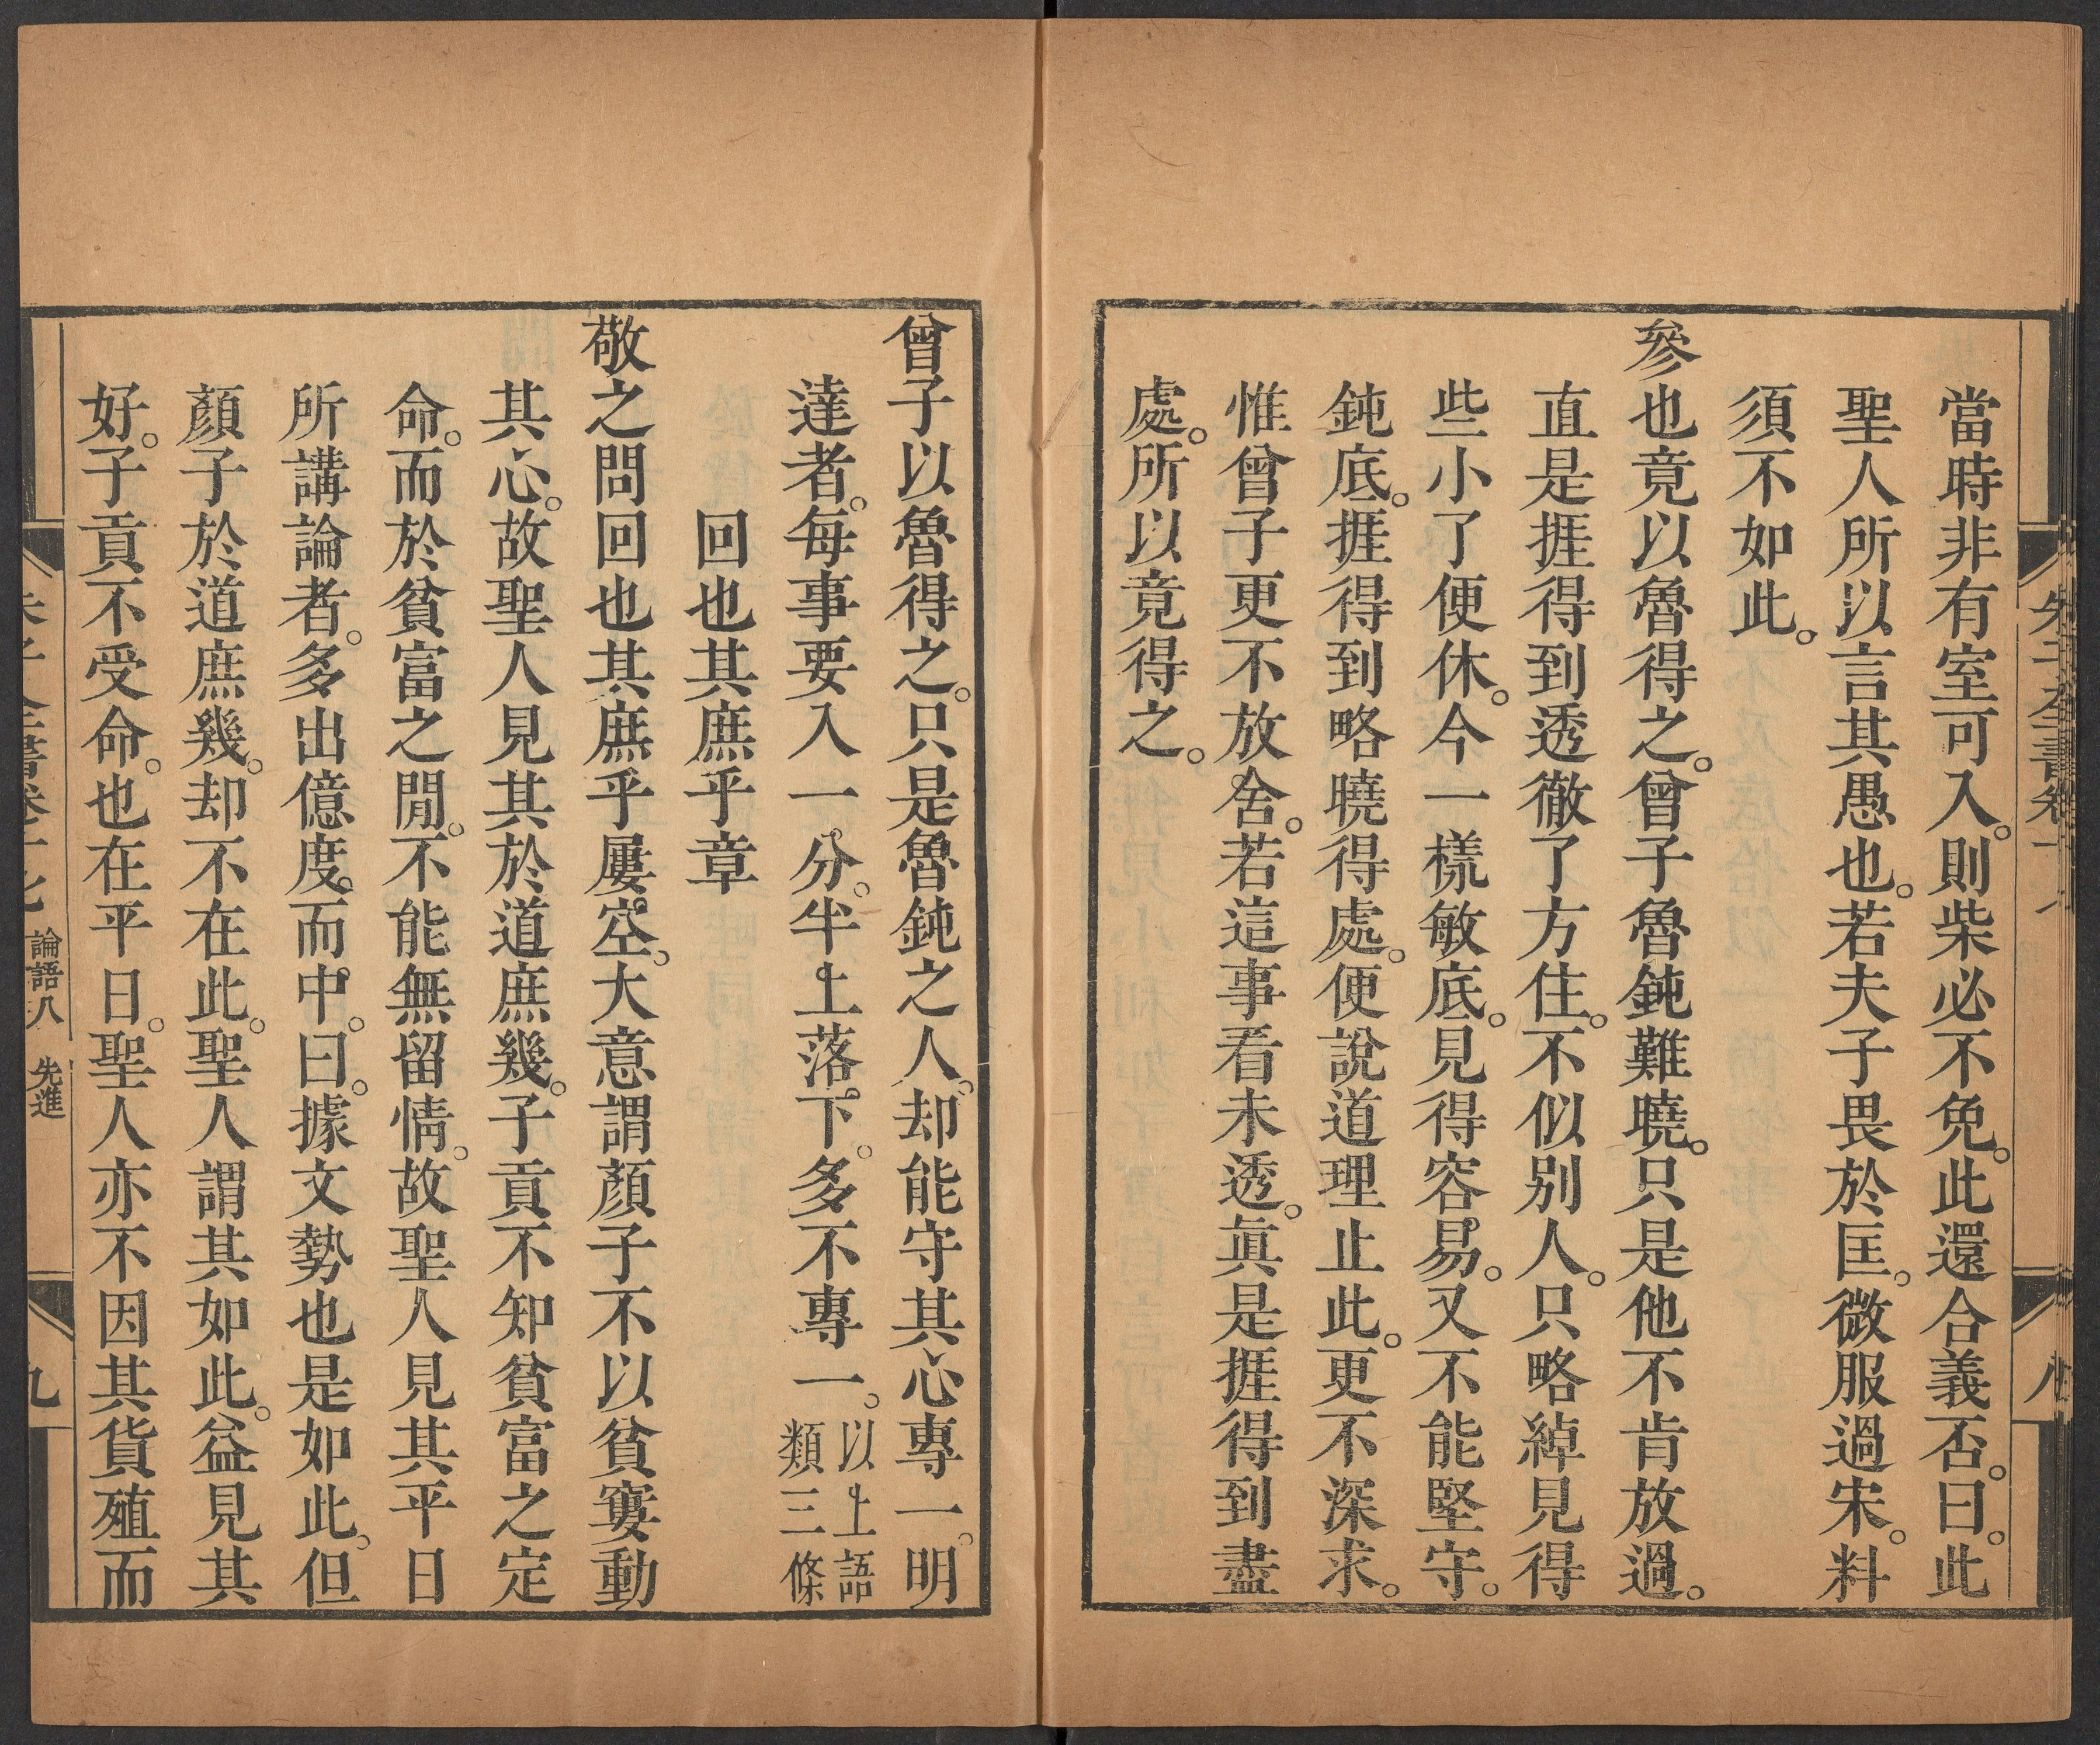 當時非有室可入。則柴必不免。此還合義否。曰。此
聖人所以言其愚也。若夫子畏於匡。微服過宋。料
須不如此。
參也竟以魯得之。曾子魯鈍難曉。只是他不肯放過。
直是捱得到透徹了方住。不似别人。只略綽見得
些小了便休。今一樣敏底。見得容易。又不能堅守。
鈍底。捱得到略曉得處。便說道理止此。更不深求。
惟曾子更不放舍。若這事看未透。真是捱得到盡
處。所以竟得之。
曾子以魯得之。只是魯鈍之人。却能守其心專一。明
達者。每事要入一分。半上落下。多不專一。以上語
類三條
回也其庶乎章
敬之問回也其庶乎屢空。大意謂顏子不以貧窶動
其心。故聖人見其於道庶幾。子貢不知貧富之定
命。而於貧富之閒。不能無留情。故聖人見其平日
所講論者。多出億度而中。曰。據文勢也是如此。但
顏子於道庶幾。却不在此。聖人謂其如此。益見其
好。子貢不受命。也在平日。聖人亦不因其貨殖而
論語八 先進
九